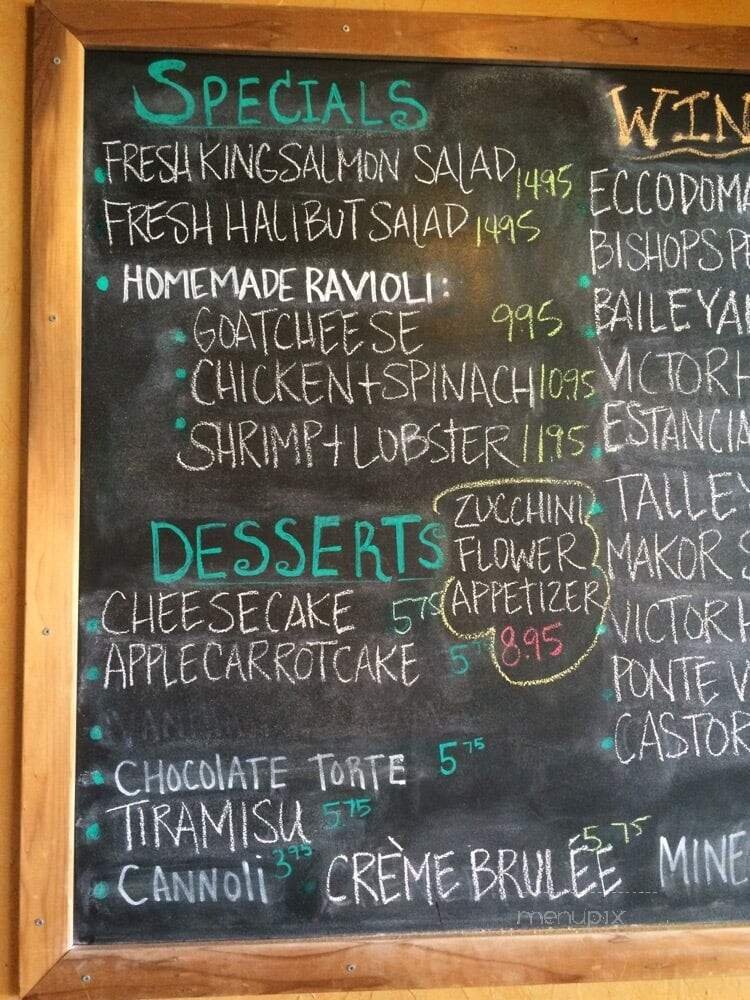 SPECIALS
FRESH KING SALMON SALAD 14.95
FRESH HALIBUT SALAD 14.95
HOMEMADE RAVIOLI:
GOAT CHEESE 9.95
CHICKEN + SPINACH 10.95
SHRIMP + LOBSTER 11.95
ZUCCHINI
FLOWER
APPETIZER
8.95
DESSERTS
CHEESECAKE 5.75
APPLE CARROT CAKE 5
CHOCOLATE TORTE 5.75
TIRAMISU 5.75
CANNOLI 3.95
CRÈME BRULÉE 5.75
WIN
ECCODOMA
BISHOPS P
BAILEYA
VICTOR
ESTANCIA
TALLEY
MAKOR S
VICTOR
PONTE V
CASTOR
MINE
menupix